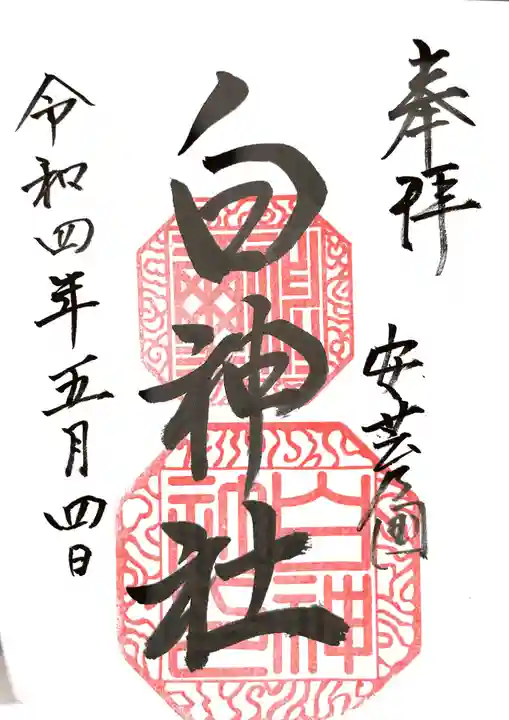 奉拝
安芸国
白神社
令和四年五月四日